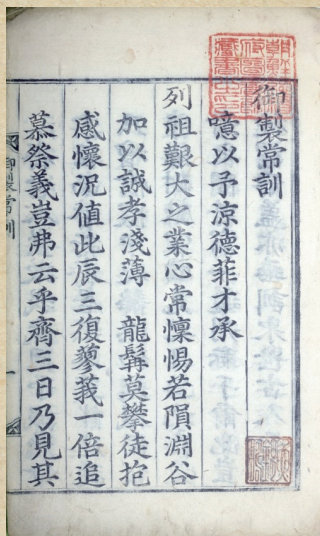 御製常訓
噫以予涼德菲才承
列祖艱大之業心常懍惕若隕淵谷
加以誠孝淺薄　龍髯莫攀徒抱
感懷況值此辰三復蓼莪一倍追
慕祭義豈弗云乎齊三日乃見其
御製常訓
一